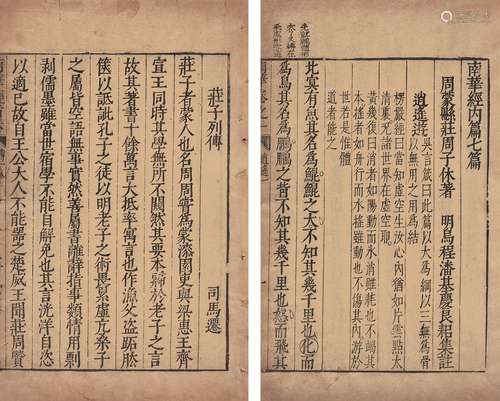 南華經內篇七篇
周蒙縣莊周子休著　明烏程潘基慶良耜集註
逍遙遊　吳言箴曰此篇以大為綱以三無為骨
以無用之用為結
楞嚴經曰當知虛空生汝心內猶如片雲點太
清裏况諸世界在虛空耶
黃幾復曰消者如陽動而水消雖耗也不竭其
本搖者如舟行而水搖雖動也不傷其內游於
世若是惟體
道者能之
北冥有魚其名為鯤鯤之大不知其幾千里也化而
為鳥其名為鵬鵬之背不知其幾千里也怒而飛其
莊子列傳
司馬遷
莊子者蒙人也名周周嘗為蒙漆園吏與梁惠王齊
宣王同時其學無所不闚然其要本歸於老子之言
故其著書十餘萬言大抵率寓言也作漁父盜跖胠
篋以詆訿孔子之徒以明老子之術畏累虛亢桑子
之屬皆空語無事實然善屬書離辭指事類情用剽
剝儒墨雖當世宿學不能自解免也其言洸洋自恣
以適己故自王公大人不能器之楚威王聞莊周賢